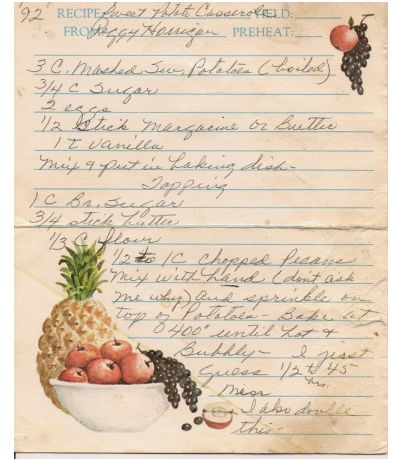 92' RECIPE: Sweet Potato Casserole YIELD:
FROM: Peggy Horrigan PREHEAT:
3 C. Mashed Sw. Potatoes (boiled)
3/4 C Sugar
2 eggs
1/2 Stick Margarine or Butter
1 t Vanilla
Mix & put in baking dish-
Topping
1 C Br. Sugar
3/4 stick butter
1/3 C flour
1/2 to 1C Chopped Pecans
Mix with hand (don't ask
me why) and sprinkle on
top of Potatoes - Bake at
400° until hot &
Bubbly - I just
guess 1/2 to 45
hrs.
Min
I also double
this-